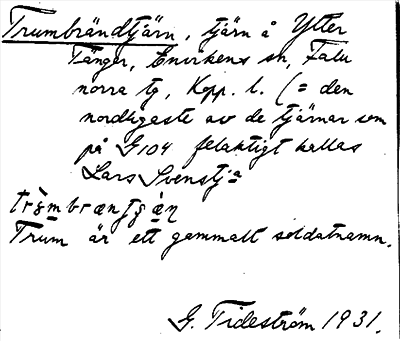 Trumbrändtjärn, tjärn å Ytter
Tänger, Envikens sn, Falu
norra tg, Kopp. l. (= den
nordligaste av de tjärnar som
på G104 felaktigt kallas
Lars Svenstja
Trum är ett gammalt soldatnamn.
G. Tideström 1931.